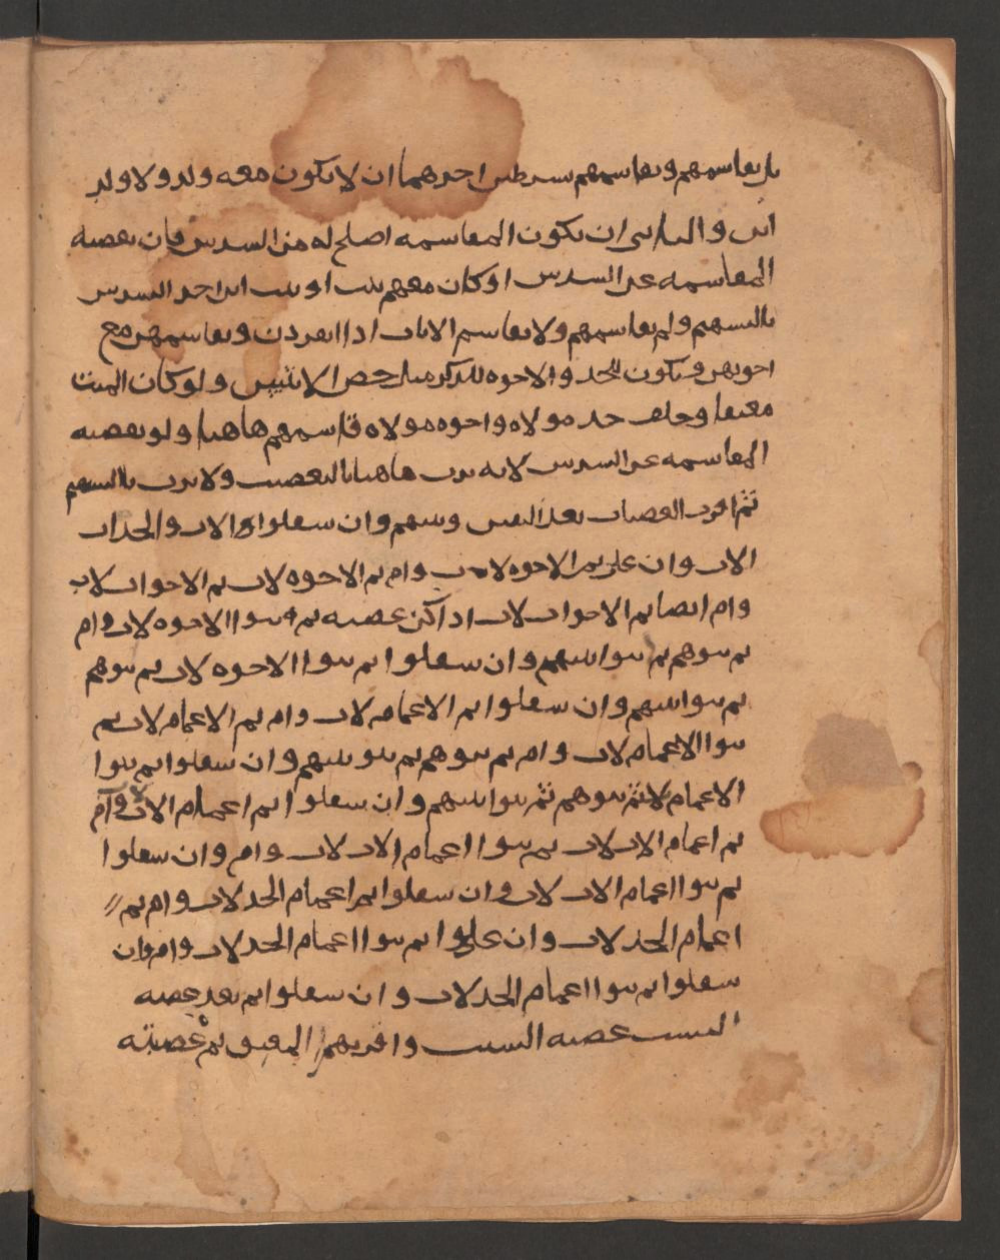 بل يقاسمهم ويقاسمهم بشرطين احدهما ان لا يكون معه ولد ولا ولد
ابن والثاني ان تكون المقاسمه اصلح له من السدس فان نقصته
المقاسمه عن السدس او كان معهم بنت او بنت ابن اخذ السدس
بالتسهيم ولم يقاسمهم ولا يقاسم الاناث اذا انفردن ويقاسمهن مع
اخوتهن فيكون للجد والاخوه للذكر مثل حض الانثيين ولو كان الميت
معتقا وخلف جد مولاه واخوه مولاه قاسمهم هاهنا ولو نقصته
المقاسمه عن السدس لانه يرث هاهنا بالتعصيب ولا يرث بالتسهيم
ثم اقرب العصبات بعد البنين وبنيهم وان سفلوا الاب والجد اب
الاب وان علا ثم الاخوه لاب وام ثم الاخوه لاب ثم الاخوات لاب
وام ايضا ثم الاخوات لاب اذا كن عصبه ثم بنوا الاخوه لاب وام
ثم بنوهم ثم بنوا بنيهم وان سفلوا ثم بنوا الاخوه لاب ثم بنوهم
ثم بنوا بنيهم وان سفلوا ثم الاعمام لاب وام ثم الاعمام لاب ثم
بنوا الاعمام لاب وام ثم بنوهم ثم بنو بنيهم وان سفلوا ثم بنوا
الاعمام لاب ثم بنوهم ثم بنوا بنيهم وان سفلوا ثم اعمام الاب لاب وام
ثم اعمام الاب لاب ثم بنوا اعمام الاب لاب وام وان سفلوا
ثم بنوا اعمام الاب لاب وان سفلوا ثم اعمام الجد لاب وام ثم
اعمام الجد لاب وان علوا ثم بنوا اعمام الجد لاب وام وان
سفلوا ثم بنوا اعمام الجد لاب وان سفلوا ثم بعد عصبه
النسب عصبه السبب واقربهم المعتق ثم عصبته